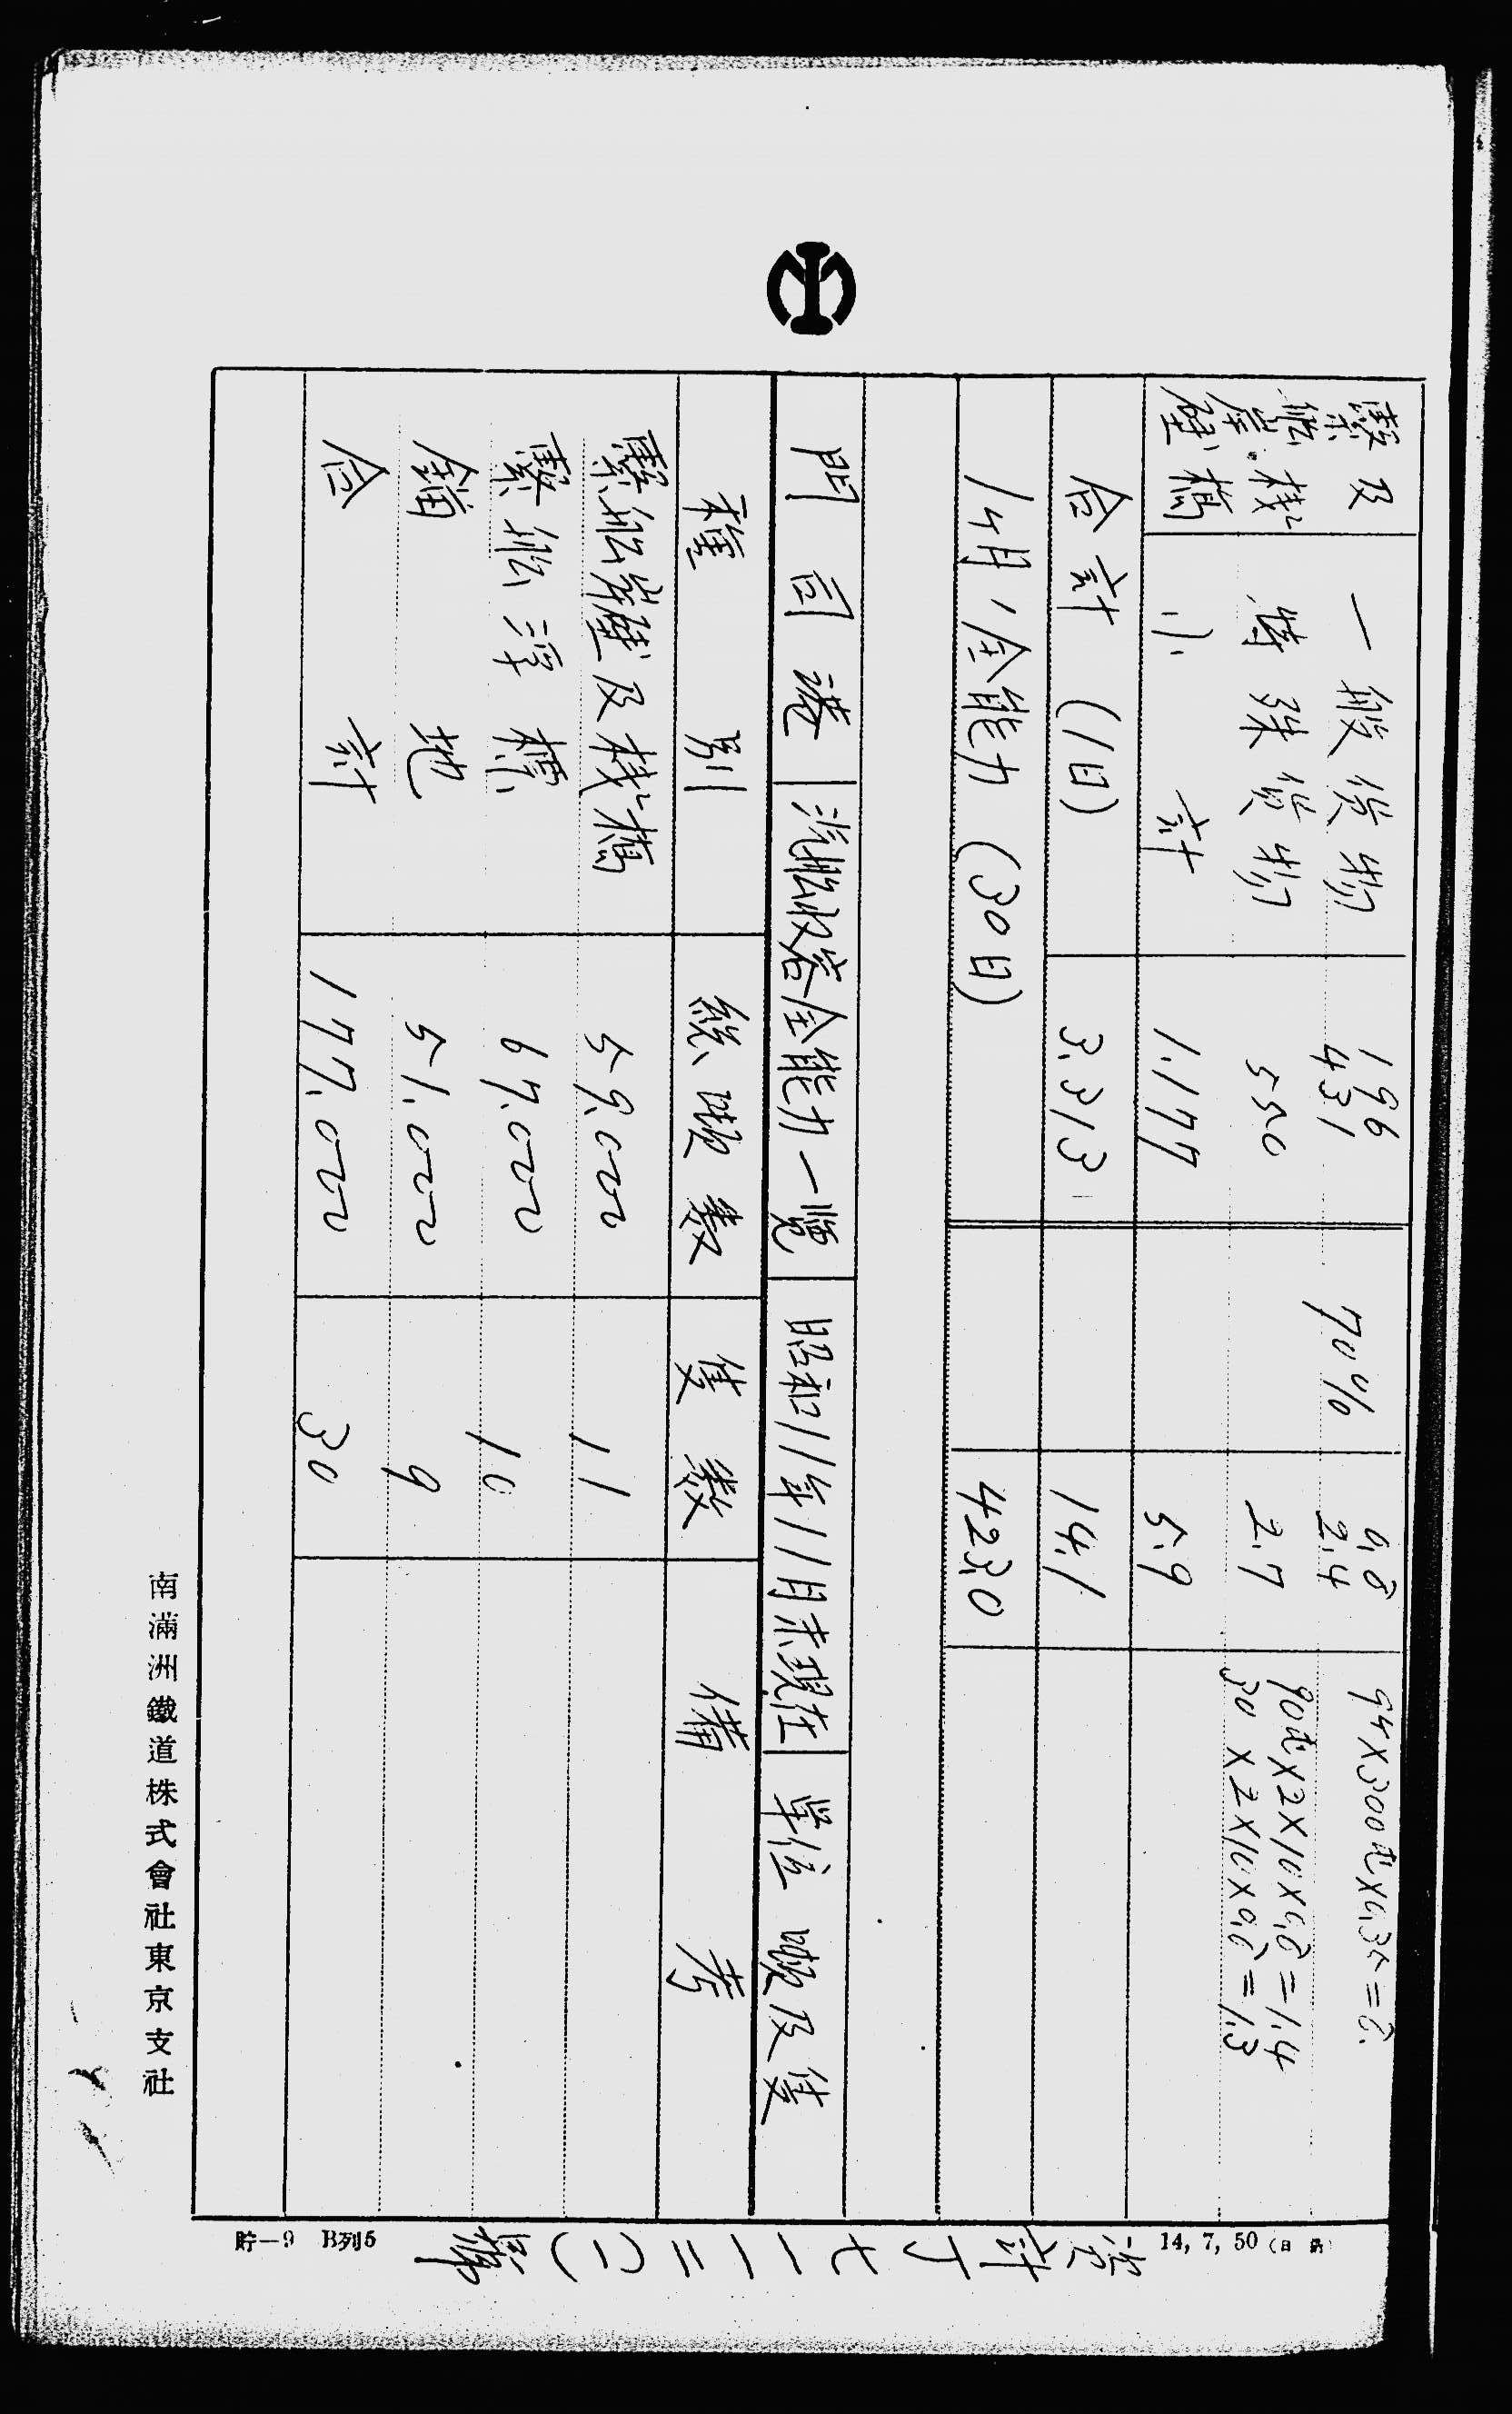 繋船岸壁及棧橋 一般貨物 196 70% 0.8
431 2.4 90米×2×10×0.8=1.4
特殊貨物 550 2.7 30×2×10×0.6=1.3
小計 1.177 5.9
合計(1日) 3.313 14.1
1ヶ月ノ全能力(30日) 423.0
門司港 汽船收容全能力一覽 昭和11年11月末現在 單位 噸及隻
種別 總噸數 隻數 備考
繋船岸壁及棧橋 59.000 11
繋船浮標 67.000 10
錨地 51.000 9
合計 177.000 30
南滿洲鐵道株式會社東京支社
貯—9 B列5
14, 7, 50